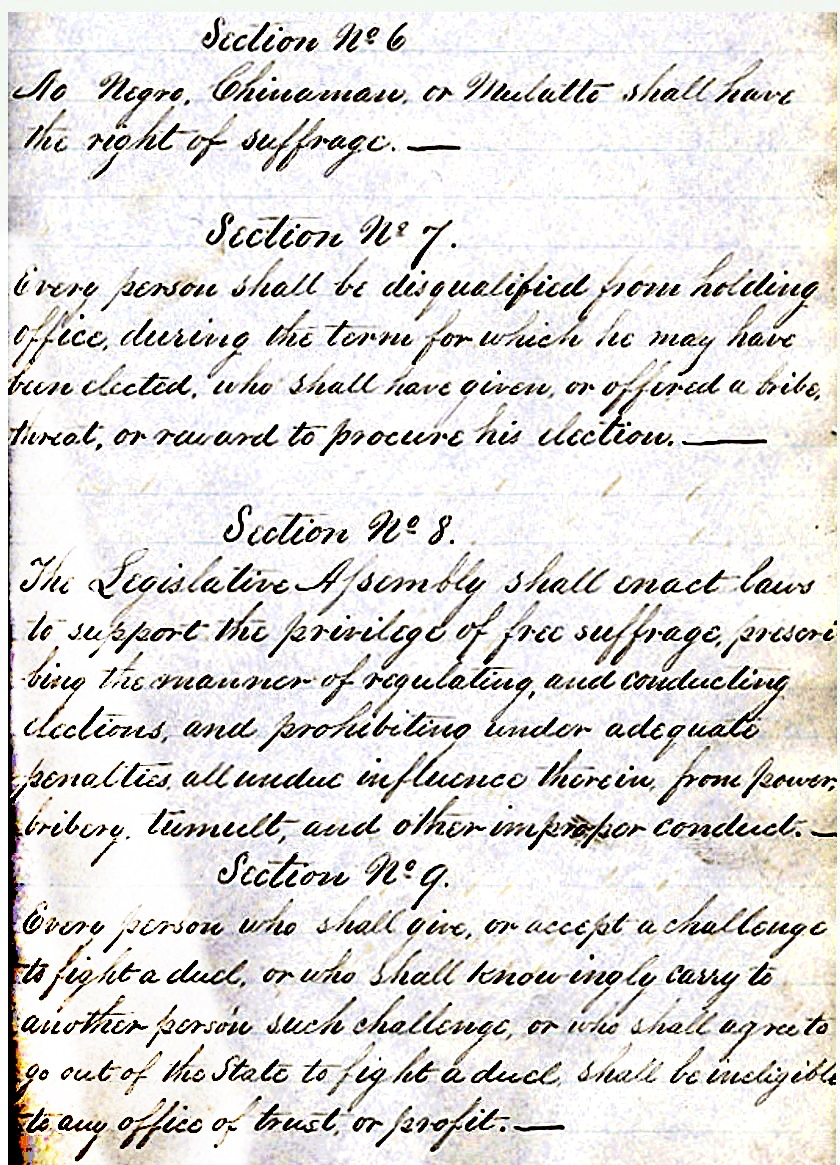 Section Nº 6
No Negro, Chinaman, or Mulatto shall have
the right of suffrage. —
Section Nº 7.
Every person shall be disqualified from holding
office, during the term for which he may have
been elected, who shall have given, or offered a bribe,
threat, or reward to procure his election. —
Section Nº 8.
The Legislative Assembly shall enact laws
to support the privilege of free suffrage, prescri
bing the manner of regulating, and conducting
elections, and prohibiting under adequate
penalties, all undue influence therein, from power,
bribery, tumult, and other improper conduct. —
Section Nº 9.
Every person who shall give, or accept a challenge
to fight a duel, or who shall knowingly carry to
another person such challenge, or who shall agree to
go out of the State to fight a duel, shall be ineligible
to any office of trust, or profit. —